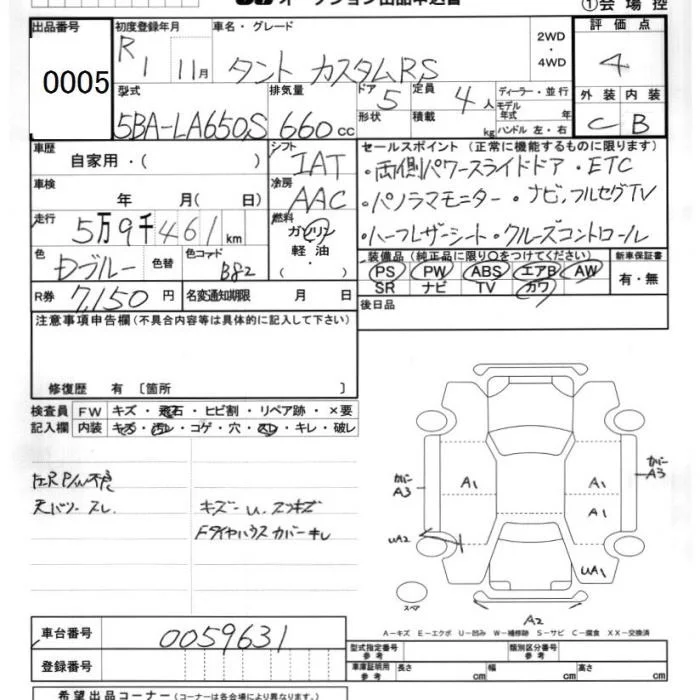 オークション出品申込書
①会場控
出品番号 0005
初度登録年月 R1 11月
車名・グレード タント カスタムRS
2WD ・ 4WD
評価点 4
型式 5BA-LA650S
排気量 660cc
ドア 5 形状
定員 4人 積載 kg
ディーラー・並行
モデル年式 年
ハンドル 左・右
外装 C 内装 B
車歴 自家用・( )
シフト IAT
車検 年 月( 日)
冷房 AAC
走行 5万9千461km
燃料 ガソリン 軽油 ・
色 Dブルー 色替
色コード B82
R券 7,150円
名変通知期限 月 日
セールスポイント(正常に機能するものに限ります)
・両側パワースライドドア・ETC
・パノラマモニター・ナビ,フルセグTV
・ハーフレザーシート・クルーズコントロール
装備品(純正品に限り○をつけてください)
PS PW ABS エアB AW
SR ナビ TV カワ
新車保証書 有・無
後日品
注意事項申告欄(不具合内容等は具体的に記入して下さい)
修復歴 有 [箇所 ]
検査員 FW キズ・飛石・ヒビ割・リペア跡・×要
記入欄 内装 キズ・汚レ・コゲ・穴・スレ・キレ・破レ
左R P/W不良
天バリ スレ.
キズ－U. スリキズ
Fタイヤハウス カバーキレ
カバー A3
A1
A1
カバー A3
A1
UA2
UA1
スペア
A2
A－キズ E－エクボ U－凹み W－補修跡 S－サビ C－腐食 XX－交換済
車台番号 0059631
登録番号
型式指定番号 参考
類別区分番号 参考
車庫証明用 参考 長さ cm 幅 cm 高さ cm
希望出品コーナー(コーナーは各会場により異なります。)